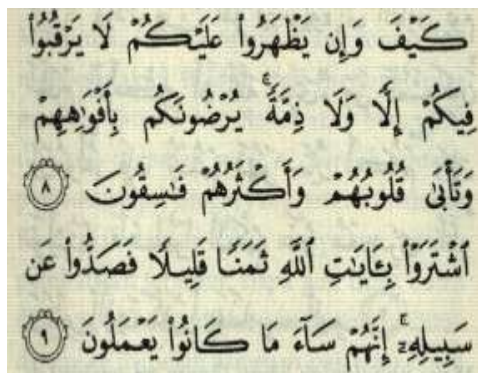 كَيْفَ وَإِن يَظْهَرُوا۟ عَلَيْكُمْ لَا يَرْقُبُوا۟
فِيكُمْ إِلًّا وَلَا ذِمَّةً ۚ يُرْضُونَكُم بِأَفْوَٰهِهِمْ
وَتَأْبَىٰ قُلُوبُهُمْ وَأَكْثَرُهُمْ فَـٰسِقُونَ ٨
ٱشْتَرَوْا۟ بِـَٔايَـٰتِ ٱللَّهِ ثَمَنًا قَلِيلًا فَصَدُّوا۟ عَن
سَبِيلِهِۦٓ ۚ إِنَّهُمْ سَآءَ مَا كَانُوا۟ يَعْمَلُونَ ٩